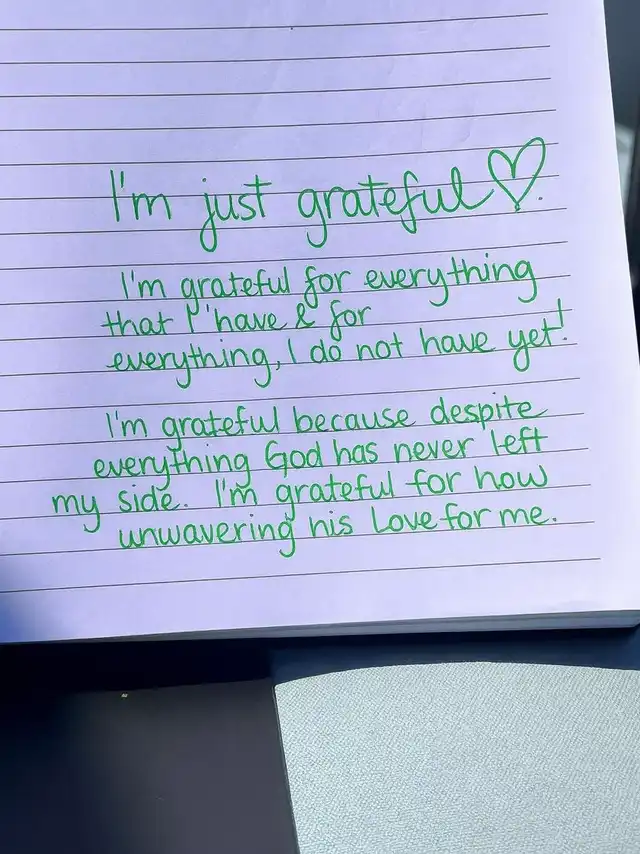 I'm just grateful♡.
I'm grateful for everything
that I have & for
everything, I do not have yet!
I'm grateful because despite
everything God has never left
my side. I'm grateful for how
unwavering his Love for me.